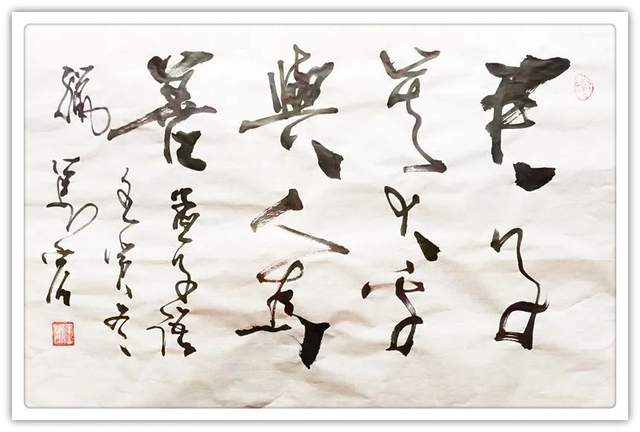 君子
莫大乎
與人為
善 孟子語
壬寅冬